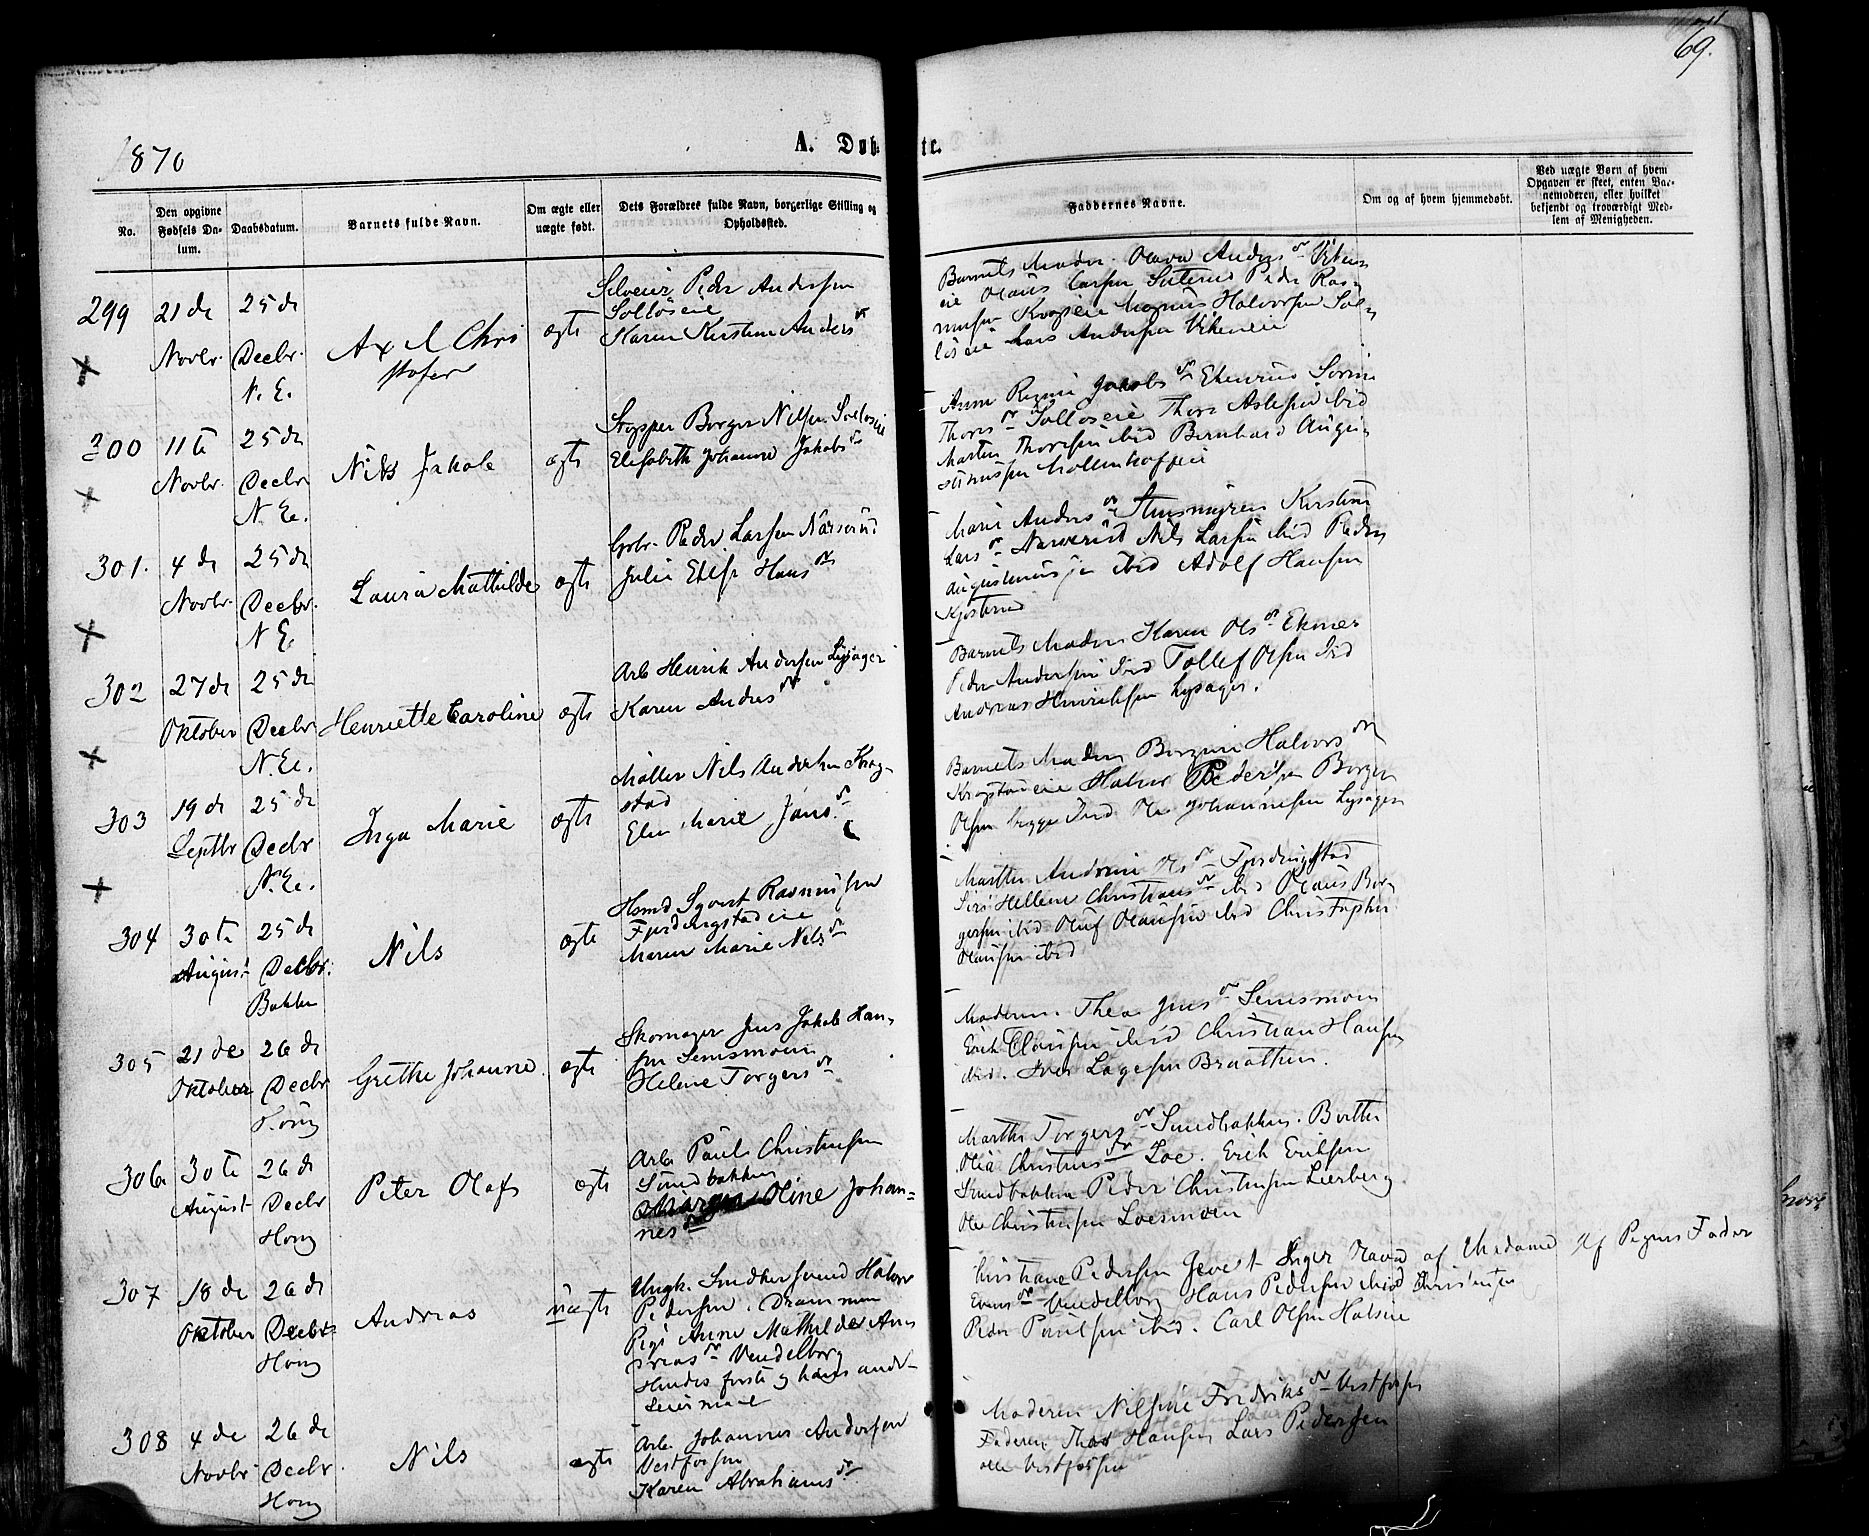 69.
1870
A. Døbte.
No.
Den opgivne Fødsels Datum.
Daabsdatum.
Barnets fulde Navn.
Om ægte eller uægte født.
Dets Forældres fulde Navn, borgerlige Stilling og Opholdssted.
Faddernes Navne.
Om og af hvem hjemmedøbt.
Ved uægte Børn af hvem Opgaven er skeet, enten Barnemoderen, eller hvilket bekjendt og troværdigt Medlem af Menigheden.
299
21 de Novbr.
25 de Decbr. N. E.
Axel Christofer
ægte
Selveier Peder Andersen
Solløseie
Karen Kirstine Anders dr
Barnets Moder. Olava Anders dr Viken
eie Olaus Larsen Peder Ras
musen Magnus Halvorsen Sol
løseie Lars Andersen Vikeneie
300
11te Novbr.
25 de Decbr N. E.
Nils Jakob
ægte
Borger Nilsen Solløseie
Elisabeth Johanne Jakobs dr
Anne Jakobs dr Ekerud
Thors dr Solløseie Thor ibid
Martin Thorsen ibid Bernhard Augu
stinusen
301.
4 de Novbr.
25 de Decbr. N E.
Laura Mathilde
ægte
Gbr. Peder Larsen Narverud
Julie Hans dr
Marie Anders dr Kirstine
Lars dr Narverud Nils Larsen ibid Peder
Augustinusen ibid Adolf Hansen
302
27 de Oktober
25 de Decbr N. E.
Henriette Caroline
ægte
Arb Henrik Andersen Lysager
Karen Andrs dr
Barnets Moder Karen Ols dr
Peder Andersen ibid Tollef Olsen ibid
Andreas Henriksen Lysager.
303
19 de Septbr
25 de Decbr N. E.
Inga Marie
ægte
Møller Nils Andersen Krog-
stad
Elen Marie Jans dr
Barnets Moder Halvors dr
Krogstadeie Halvor Pedersen Borger
Olsen begge ibid Ole Johannesen Lysager
304
30te August
25 de Decbr. Bakken
Nils
ægte
Hsmd Syvert Rasmusen
Fjerdingstadeie
Maren Marie Nils dr
Marthe Andrine Ols dr Fjerdingstad
Hellene Christians dr ibid Olaus Bor
gersen ibid Oluf Olausen ibid Christopher
Olausen ibid
305
21 de Oktober
26 de Decbr Houg
Grethe Johanne
ægte
Skomager Jens Jakob Han-
sen
Helene Torgers dr
Moderen. Thea Jens dr
Erik Olausen ibid Christian Hansen
ibid. Iver Lagesen Braathen.
306
30te August
26 de Decbr Houg
Peter Olaf
ægte
Arb. Paul Christensen
Sundbakken
Oline Johan-
nes dr
Marthe Torgers dr Sundbakken. Berthe
Olea Christens dr Loe. Erik Eriksen
Sundbakken Peder Christensen Lierberg
Ole Christensen Loesmoen
307
18 de Oktober
26 de Decbr Houg
Andreas
uægte
Ungk. Snedkersvend Halvor
Pedersen. Drammen
Pige Anne Mathilde An
dreas dr Vendelborg
Hendes første og hans andet
Leiermaal
Christiane Pedersen Inger Olava
Evens dr Vendelborg Hans Pedersen ibid
Peder Paulsen ibid. Carl Olsen
af Madame Christensen
Af Pigens Fader
308
4 de Novbr
26 de Decbr. Houg
Nils
ægte
Arb. Johannes Andersen
Vestfossen
Karen Abrahams dr
Moderen Nilsine Fredriks dr Vestfossen
Faderen Thor Hansen Lars Pedersen
alle Vestfossen